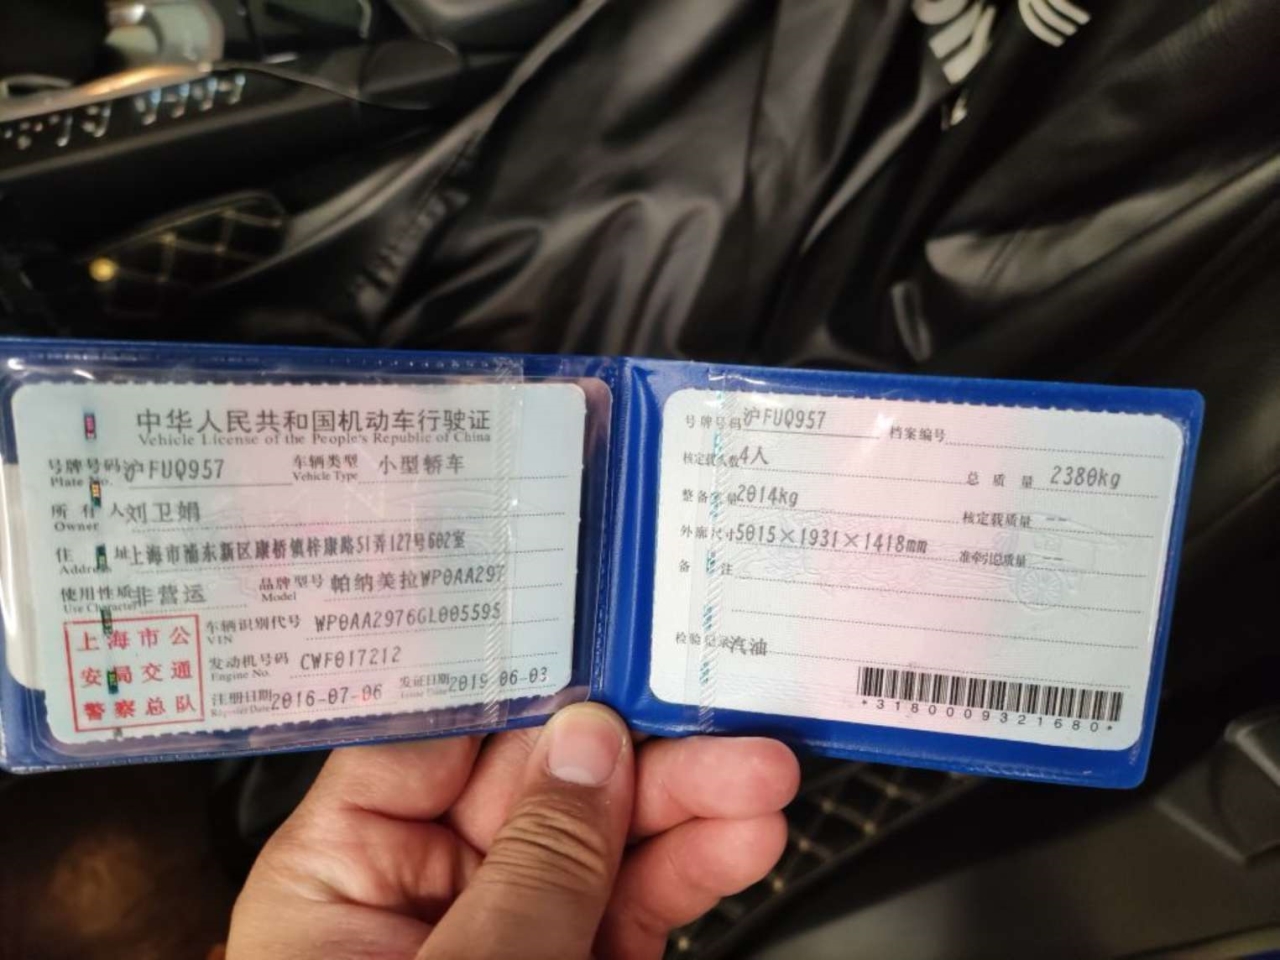 中华人民共和国机动车行驶证
Vehicle License of the People's Republic of China
号牌号码 沪FUQ957 车辆类型 小型轿车
Plate No. Vehicle Type
所有人 刘卫娟
Owner
住址 上海市浦东新区康桥镇梓康路51弄127号602室
Address
使用性质 非营运 品牌型号 帕纳美拉WP0AA297
Use Character Model
上海市公安局交通警察总队
车辆识别代号 WP0AA2976GL005595
VIN
发动机号码 CWF017212
Engine No.
注册日期 2016-07-06 发证日期 2019-06-03
Register Date Issue Date
号牌号码 沪FUQ957 档案编号
核定载人数 4人 总质量 2380kg
整备质量 2014kg 核定载质量 --
外廓尺寸 5015×1931×1418mm 准牵引总质量 --
备注
检验记录 汽油
*3180009321680*